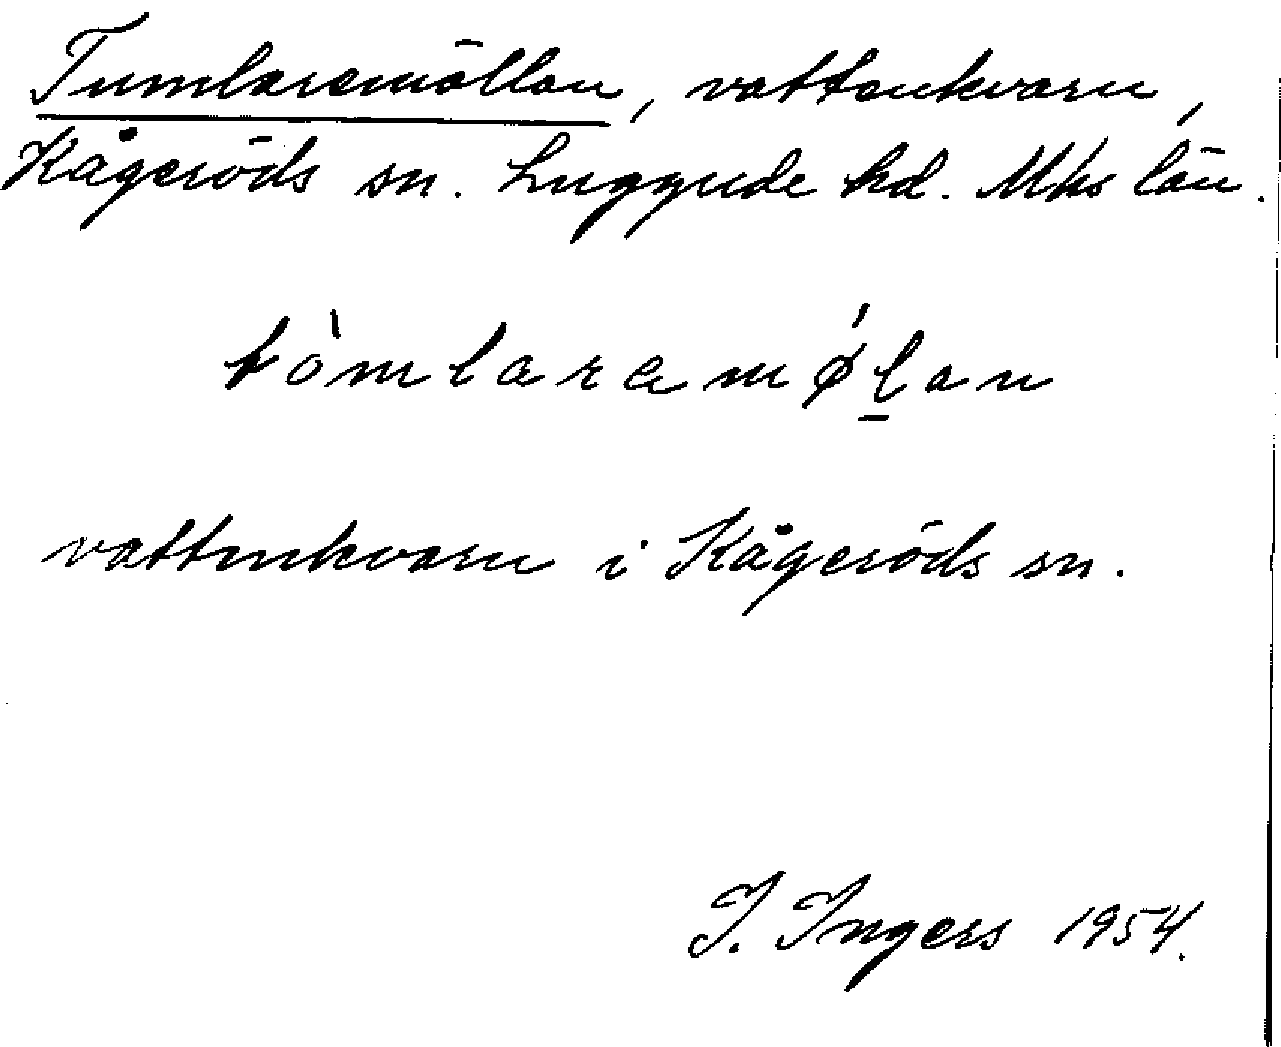 Tumlaremöllan, vattenkvarn,
Kågeröds sn. Luggude hd. Mhs län.
tòmlaramǿlan
vattenkvarn i Kågeröds sn.
I. Ingers 1954.